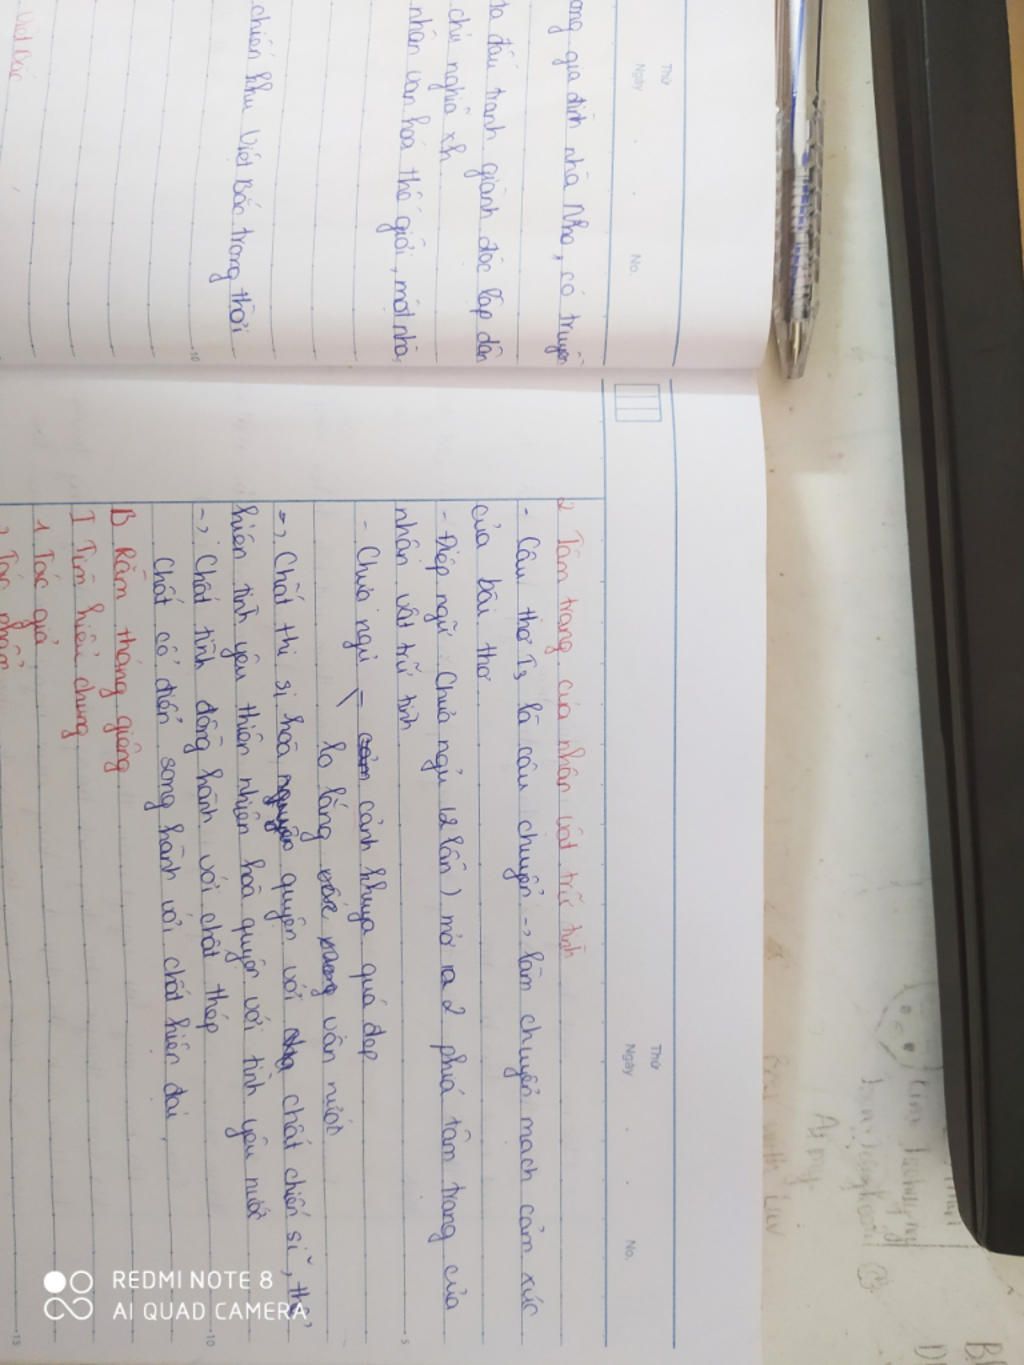 Thứ
Ngày
No.
ong gia đình nhà Nho, có truyền
ta đấu tranh giành độc lập dân
chủ nghĩa xh
nhân văn hoá thế giới, một nhà
chiến khu Việt Bắc trong thời
10
Việt Bắc
Thứ
Ngày
No.
2 Tâm trạng của nhân vật trữ tình
- Câu thơ T3 là câu chuyển -> làm chuyển mạch cảm xúc
của bài thơ
- Điệp ngữ: Chưa ngủ (2 lần) mở ra 2 phía tâm trạng của
nhân vật trữ tình
5
- Chưa ngủ = cảnh khuya quá đẹp
lo lắng vận nước
=> Chất thi sĩ hoà quyện với chất chiến sĩ, thể
hiện tình yêu thiên nhiên hoà quyện với tình yêu nước
-> Chất tình đồng hành với chất thép
10
Chất cổ điển song hành với chất hiện đại
B Rằm tháng giêng
I Tìm hiểu chung
1 Tác giả
2 Tác phẩm
15
REDMI NOTE 8
AI QUAD CAMERA